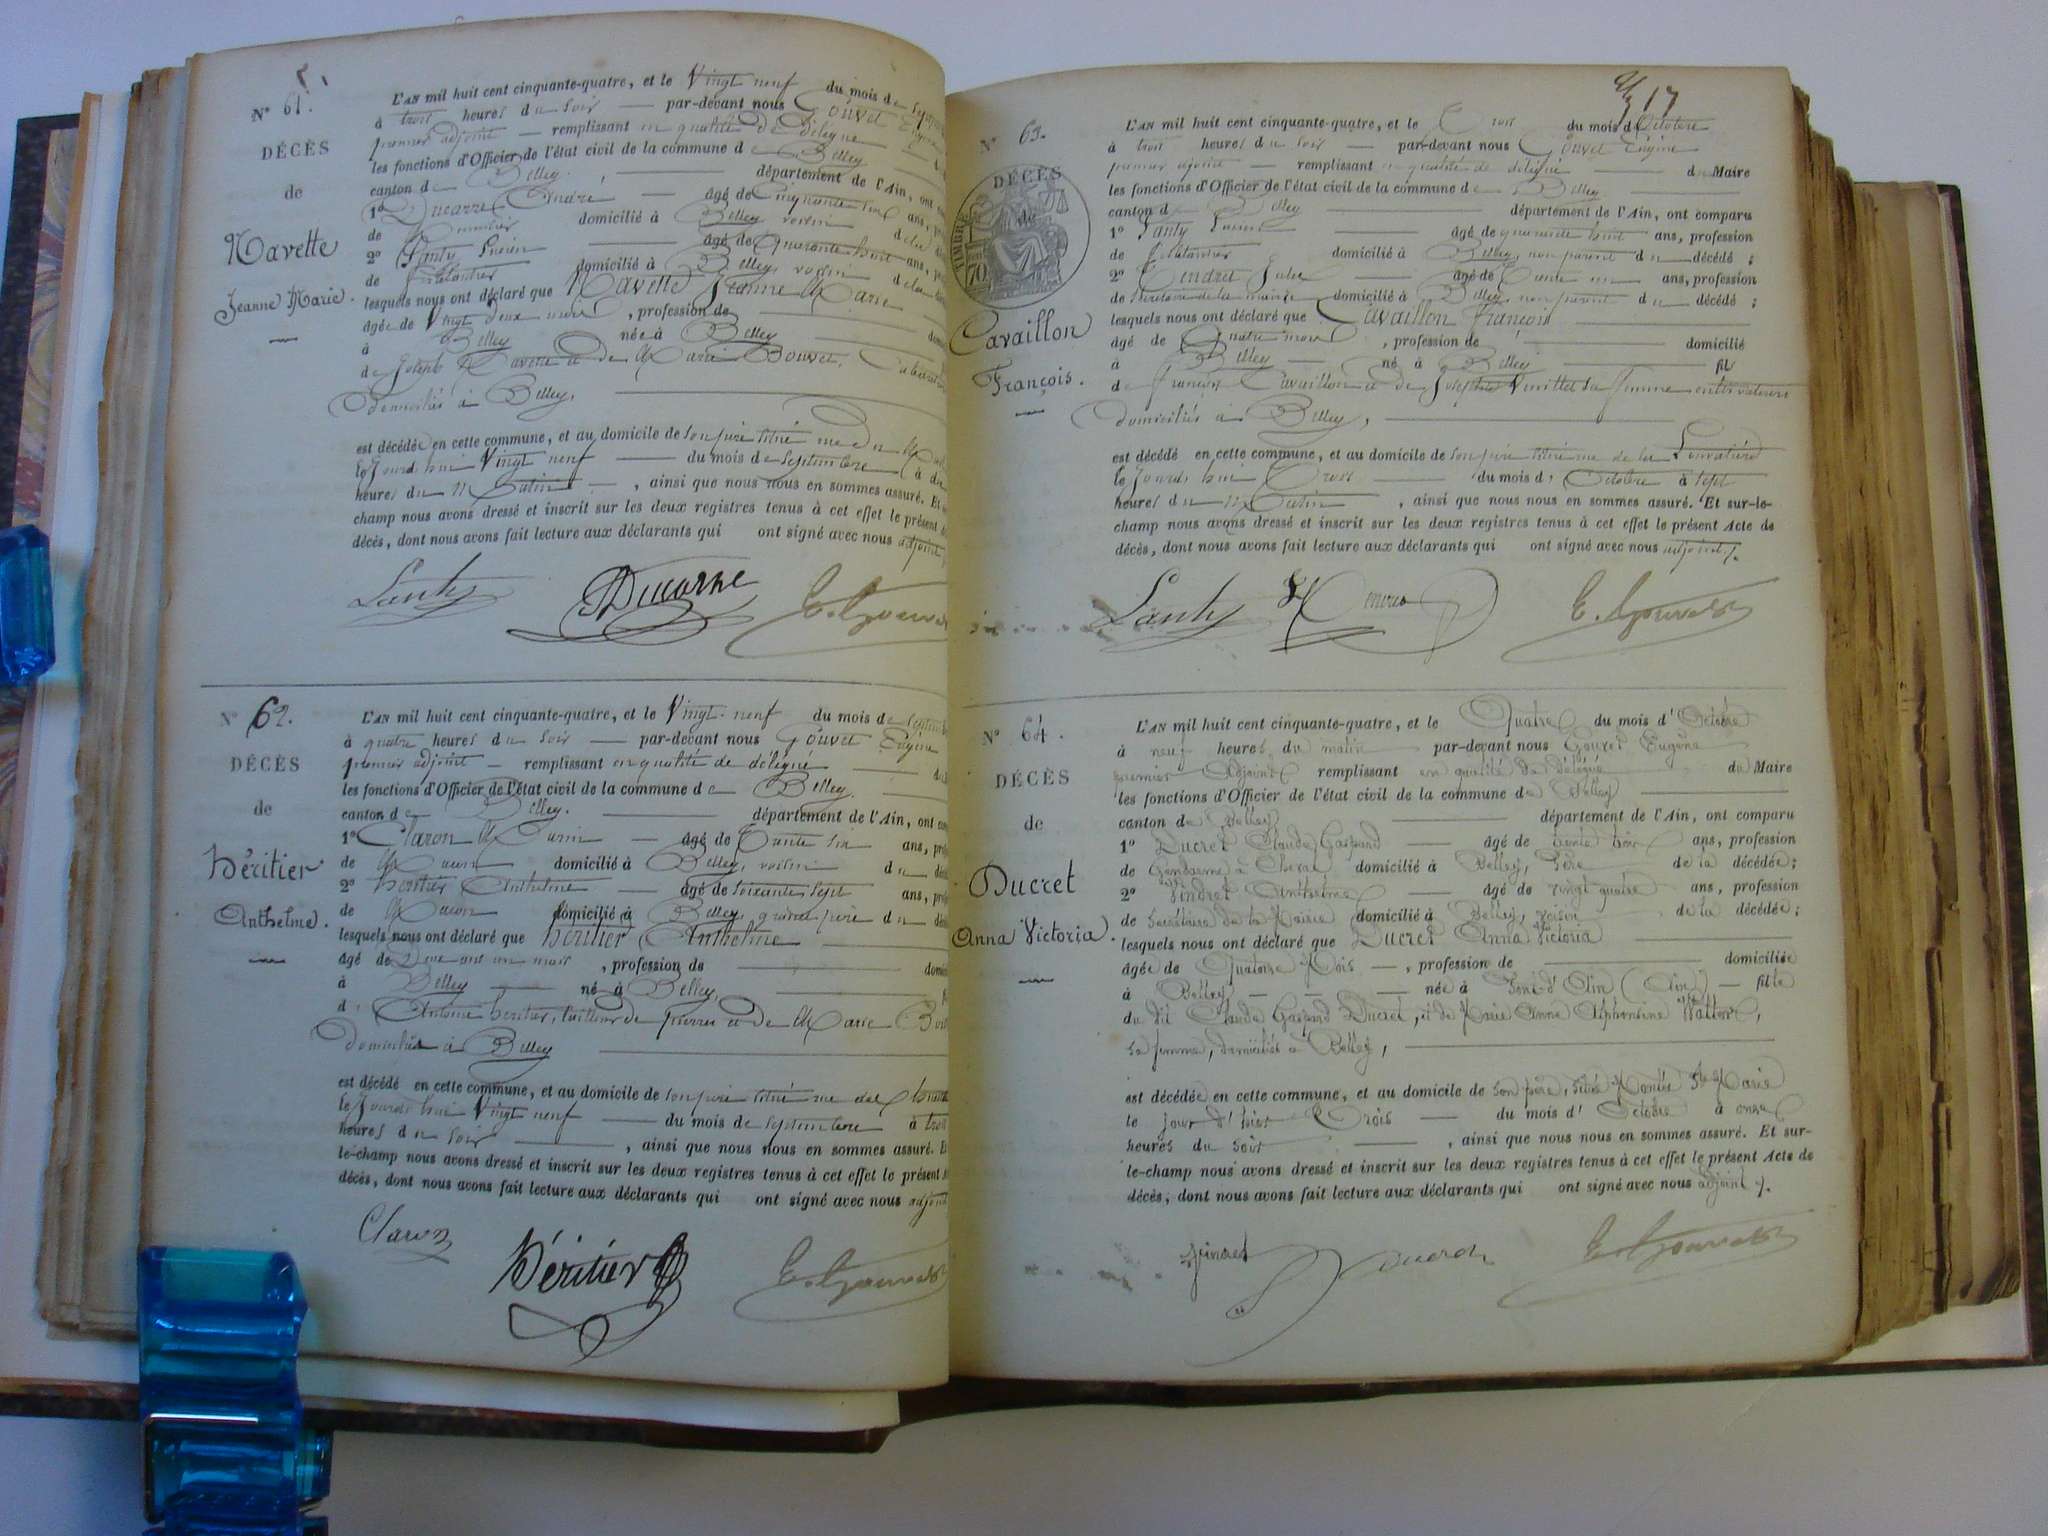 N° 61.
DÉCÈS
de
Navette
Jeanne Marie.
L'AN mil huit cent cinquante-quatre, et le Vingt neuf du mois de
à trois heures du soir — par-devant nous Gouvet
premier adjoint — remplissant en qualité de délégué
les fonctions d'Officier de l'état civil de la commune de Belley
canton de Belley. département de l'Ain, ont
1° Ducarre André — âgé de Cinquante ans,
de domicilié à Belley voisin de la
2° Lanty âgé de quarante huit ans,
de domicilié à Belley, voisin de la
lesquels nous ont déclaré que Navette Jeanne Marie
âgée de Vingt deux mois, profession de
à Belley née à Belley
de Joseph Navette et de Marie Bouvet,
domiciliés à Belley,
est décédée en cette commune, et au domicile de son père situé rue du
le Jourd'hui Vingt neuf — du mois de Septembre à
heures du Matin, ainsi que nous nous en sommes assuré. Et
champ nous avons dressé et inscrit sur les deux registres tenus à cet effet le présent
décès, dont nous avons fait lecture aux déclarants qui ont signé avec nous adjoint
Lanty Ducarre E. Gouvet
N° 62.
DÉCÈS
de
Héritier
Anthelme.
L'AN mil huit cent cinquante-quatre, et le Vingt-neuf du mois de
à quatre heures du soir — par-devant nous Gouvet Eugène
premier adjoint — remplissant en qualité de délégué
les fonctions d'Officier de l'état civil de la commune de Belley.
canton de Belley. département de l'Ain, ont
1° Claron — âgé de Trente six ans,
de Maçon domicilié à Belley, voisin du
2° héritier Anthelme — âgé de soixante sept ans,
de Maçon domicilié à Belley, grand père du
lesquels nous ont déclaré que héritier Anthelme
âgé de Deux ans un mois, profession de
à Belley né à Belley,
d' Antoine héritier, tailleur de pierres et de Marie
Domiciliés à Belley
est décédé en cette commune, et au domicile de son père situé rue
le Jourd'hui Vingt neuf — du mois de Septembre à trois
heures du soir, ainsi que nous nous en sommes assuré. Et
le-champ nous avons dressé et inscrit sur les deux registres tenus à cet effet le présent
décès, dont nous avons fait lecture aux déclarants qui ont signé avec nous adjoint
Claron Héritier E. Gouvet
17
N° 63.
DÉCÈS
de
TIMBRE
70
Cavaillon
François.
L'AN mil huit cent cinquante-quatre, et le Trois du mois d'Octobre
à trois heures du soir — par-devant nous Gouvet Eugène
premier adjoint — remplissant en qualité de délégué du Maire
les fonctions d'Officier de l'état civil de la commune de Belley
canton de Belley département de l'Ain, ont comparu
1° Lanty âgé de quarante huit ans, profession
de domicilié à Belley, non parent du décédé ;
2° Jules âgé de Trente un ans, profession
de secrétaire de la mairie domicilié à Belley, non parent du décédé ;
lesquels nous ont déclaré que Cavaillon François
âgé de Quatre mois, profession de domicilié
à Belley né à Belley fils
de François Cavaillon et de Josephte sa femme cultivateurs
domiciliés à Belley,
est décédé en cette commune, et au domicile de son père situé rue de la
le Jourd'hui Trois du mois d' Octobre à sept
heures du Matin, ainsi que nous nous en sommes assuré. Et sur-le-
champ nous avons dressé et inscrit sur les deux registres tenus à cet effet le présent Acte de
décès, dont nous avons fait lecture aux déclarants qui ont signé avec nous adjoint.
Lanty E. Gouvet
N° 64.
DÉCÈS
de
Ducret
Anna Victoria.
L'AN mil huit cent cinquante-quatre, et le Quatre du mois d' Octobre
à neuf heures du matin par-devant nous Gouvet Eugène
premier Adjoint remplissant en qualité de délégué du Maire
les fonctions d'Officier de l'état civil de la commune de Belley
canton de Belley département de l'Ain, ont comparu
1° Ducret Claude Gaspard — âgé de trente trois ans, profession
de Gendarme à Cheval domicilié à Belley, Père de la décédée ;
2° Anthelme — âgé de vingt quatre ans, profession
de Secrétaire de la Mairie domicilié à Belley, voisin de la décédée ;
lesquels nous ont déclaré que Ducret Anna Victoria
âgée de Quatorze Mois —, profession de domiciliée
à Belley née à Pont-d'Ain (Ain) — fille
du dit Claude Gaspard Ducret, et de Marie Anne Alphonsine
sa femme, domiciliés à Belley,
est décédée en cette commune, et au domicile de son père, situé Montée Ste Marie
le jour d'hier Trois — du mois d' Octobre à onze
heures du soir —, ainsi que nous nous en sommes assuré. Et sur-
le-champ nous avons dressé et inscrit sur les deux registres tenus à cet effet le présent Acte de
décès, dont nous avons fait lecture aux déclarants qui ont signé avec nous adjoint.
Ducret E. Gouvet